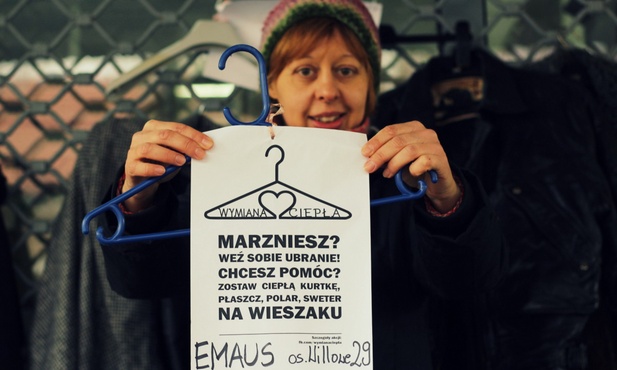 WYMIANA CIEPŁA
MARZNIESZ?
WEŹ SOBIE UBRANIE!
CHCESZ POMÓC?
ZOSTAW CIEPŁĄ KURTKĘ,
PŁASZCZ, POLAR, SWETER
NA WIESZAKU
Szczegóły akcji:
EMAUS os. Willowe 29